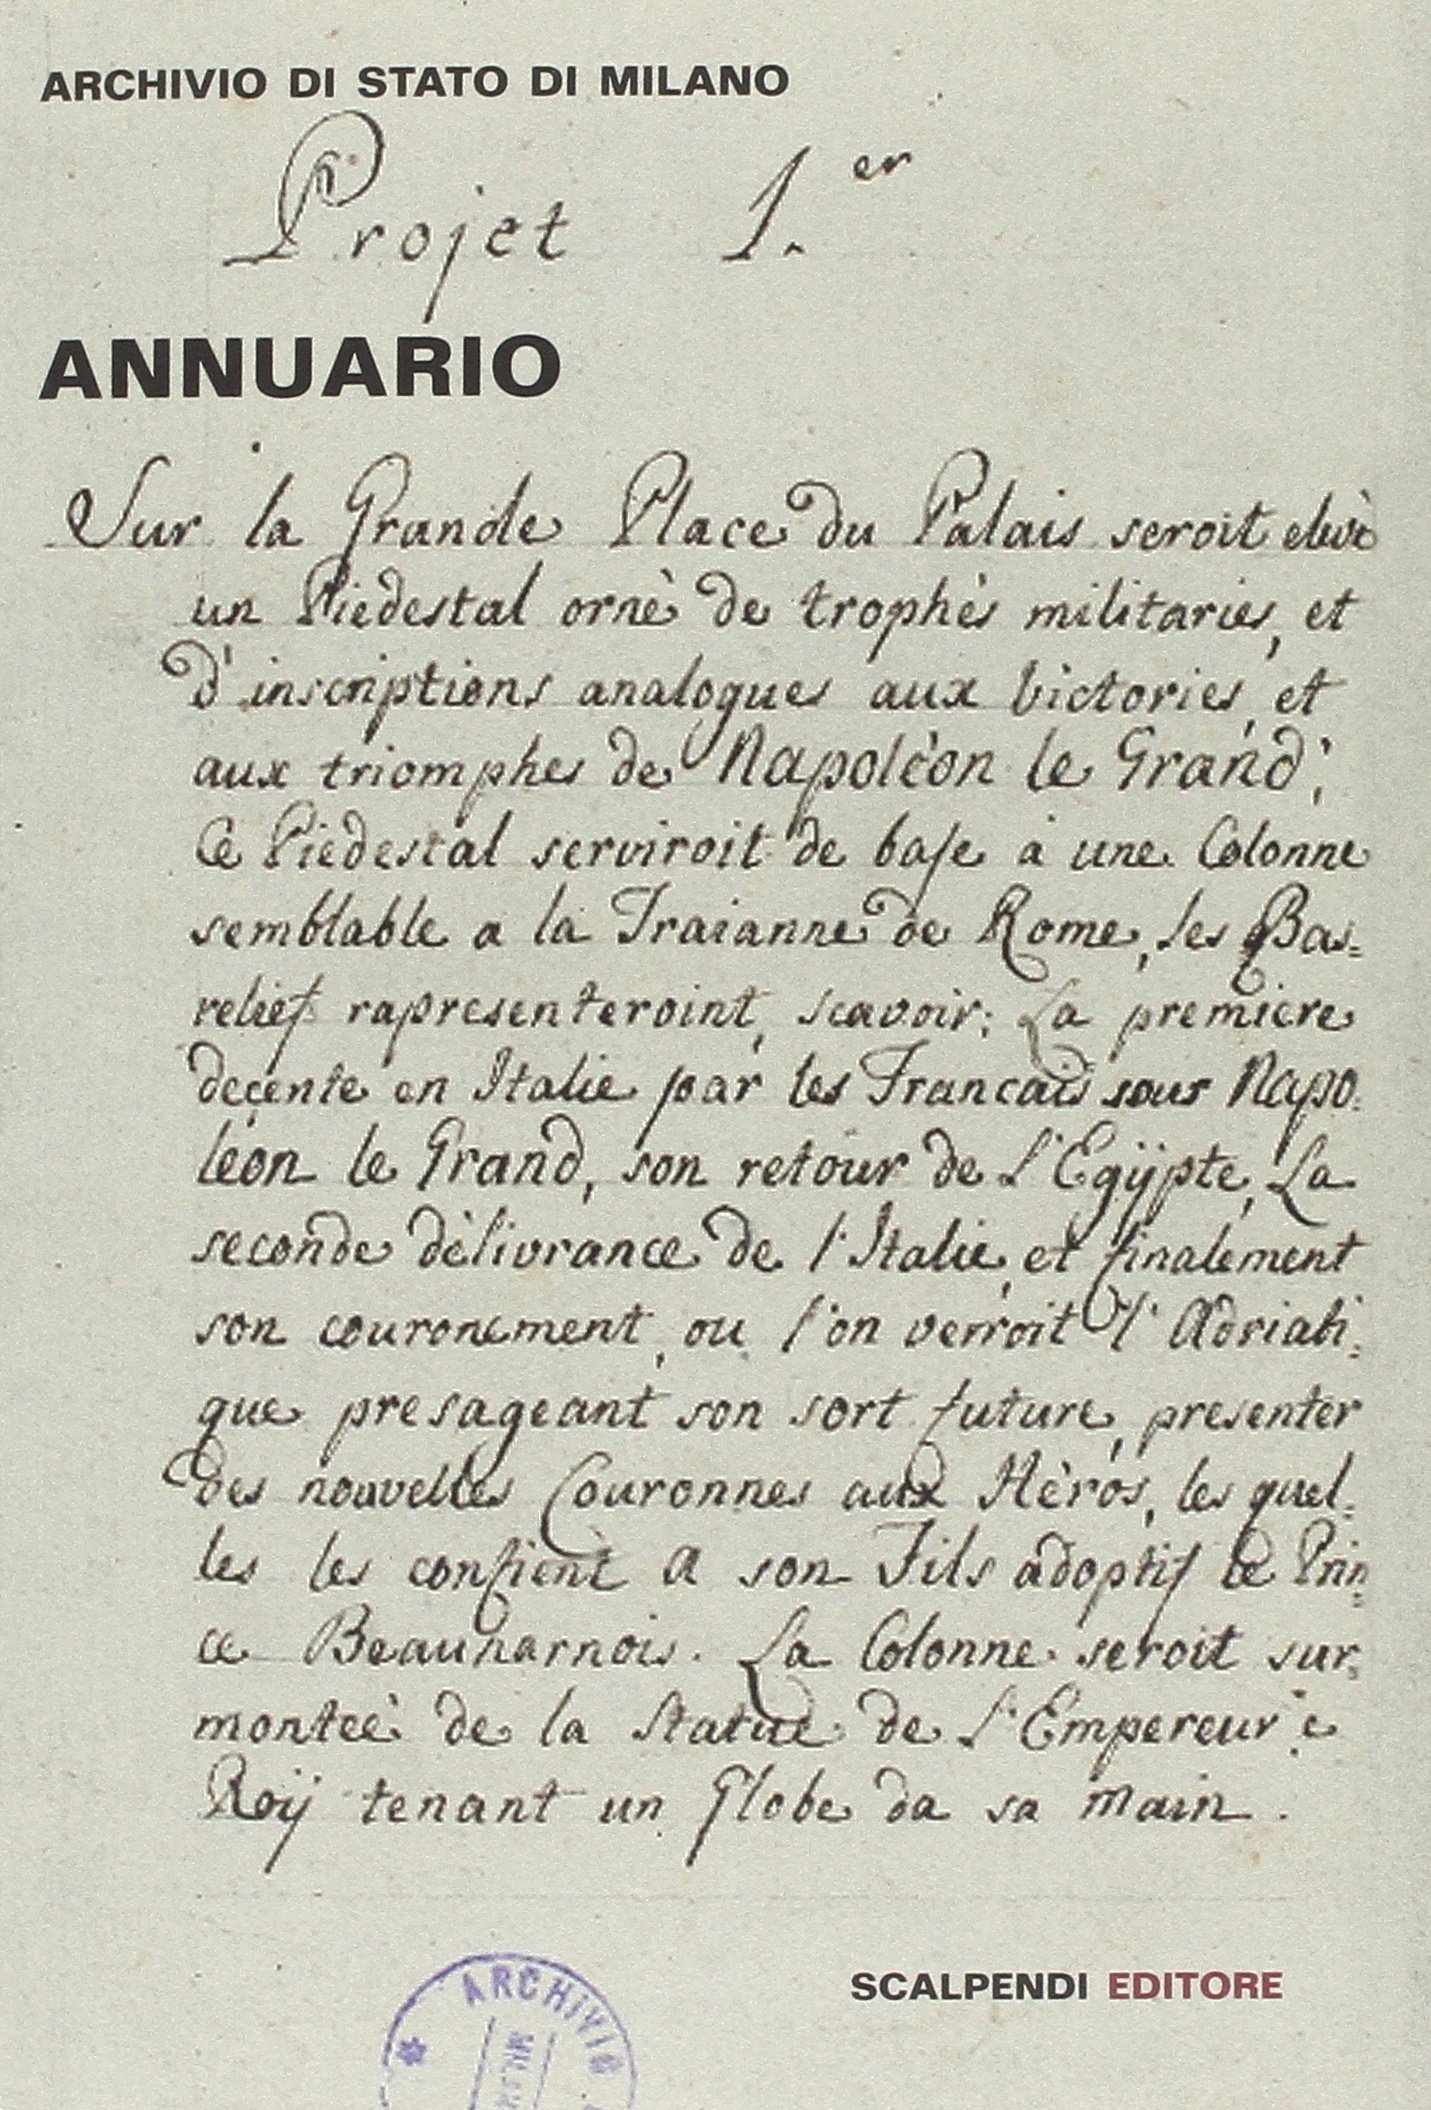 ARCHIVIO DI STATO DI MILANO
Projet 1.er
ANNUARIO
Sur la Grande Place du Palais seroit elevè
un Piedestal ornè de trophès militaries, et
d'inscriptions analogues aux victories, et
aux triomphes de Napolèon le Grand;
Ce Piedestal serviroit de base a une Colonne
semblable a la Traianne de Rome, les Bas=
relief rapresenteroint, scavoir: La premiere
deçente en Italie par les Francais sous Napo=
leon le Grand, son retour de L'Egÿpte, La
seconde dèlivrance de l'Italie, et finalement
son couronement, ou l'on verroit l'Adriati=
que presageant son sort future, presenter
des nouvelles Couronnes aux Hèros, les quel=
les les confient a son Fils adoptif le Prin=
ce Beauharnois. La Colonne seroit sur=
monteè de la Statue de L'Empereur e
Roÿ tenant un Globe da sa main.
SCALPENDI EDITORE
ARCHIVIO